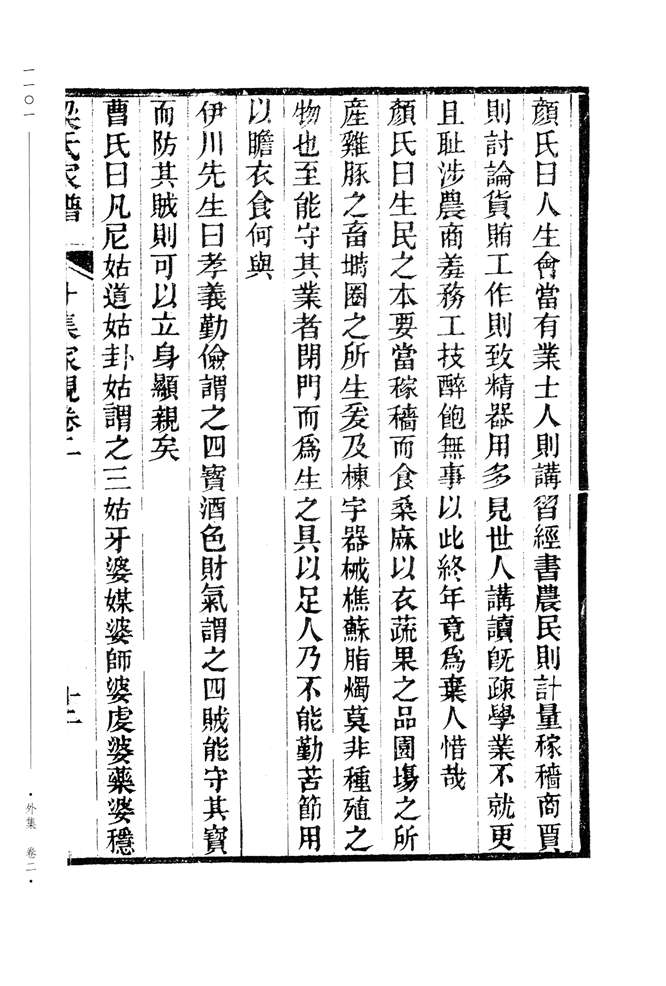 顔氏曰人生會當有業士人則講習經書農民則計量稼穡商賈
則討論貨賄工作則致精器用多見世人講讀旣疎學業不就更
且耻涉農商羞務工技醉飽無事以此終年竟爲棄人惜哉
顔氏曰生民之本要當稼穡而食桑麻以衣蔬果之品園塲之所
産雞豚之畜塒圈之所生爰及棟宇器械樵蘇脂燭莫非種殖之
物也至能守其業者閉門而爲生之具以足人乃不能勤苦節用
以瞻衣食何與
伊川先生曰孝義勤儉謂之四寳酒色財氣謂之四賊能守其寳
而防其賊則可以立身顯親矣
曹氏曰凡尼姑道姑卦姑謂之三姑牙婆媒婆師婆虔婆藥婆穩
梁氏家譜 外集家規卷二 十二
一一〇一
·外集 卷二·